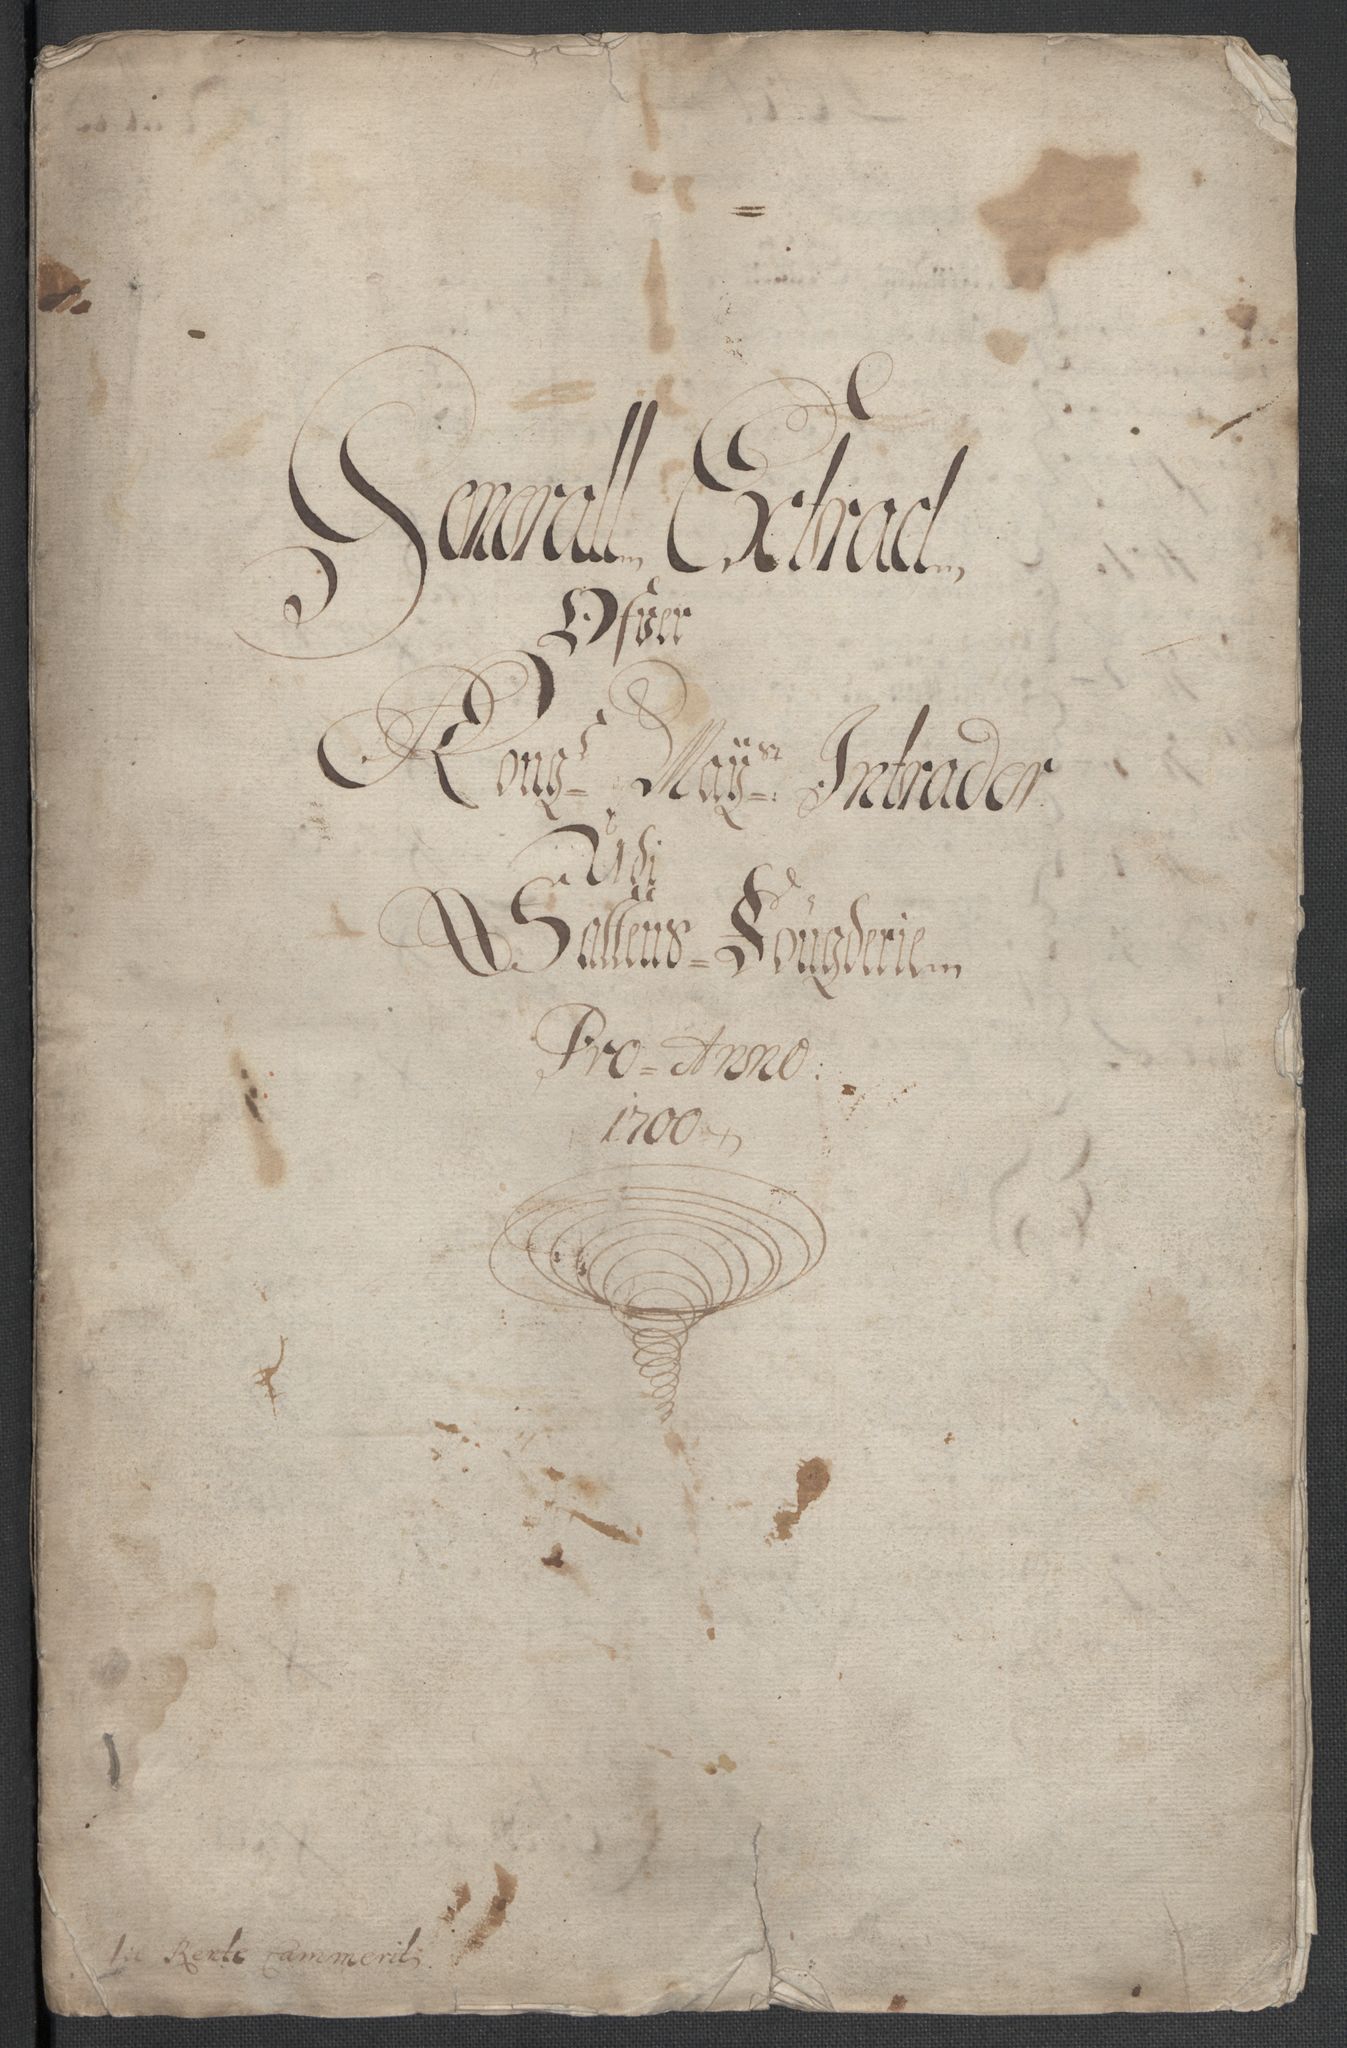 Generall Extract
Ofver
Kongl Mayst Intrader
Udi
Saltens Fougderie
Pro Anno:
1700
til Rente Cammerit